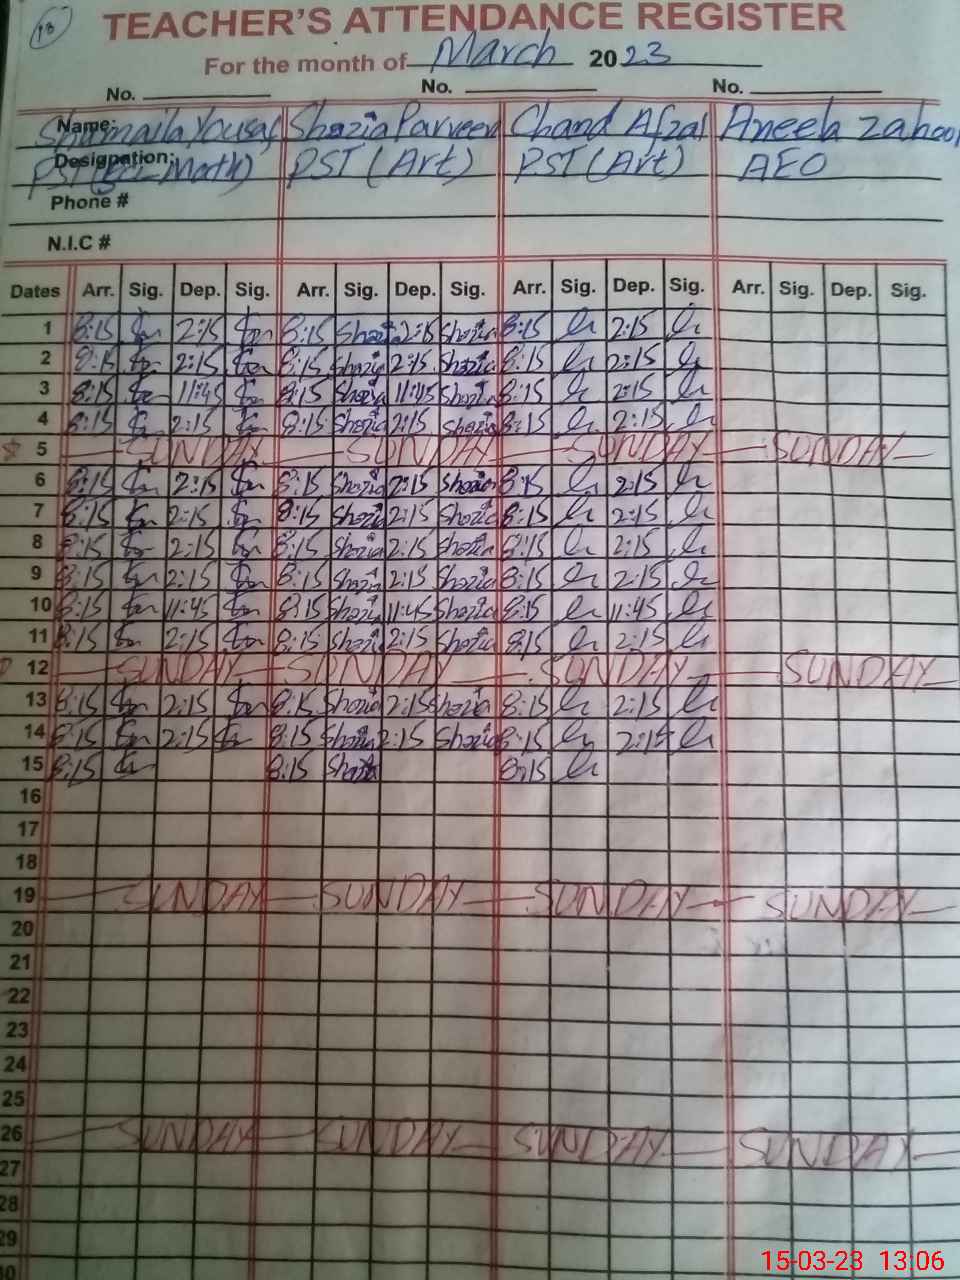 18
TEACHER'S ATTENDANCE REGISTER
For the month of March 2023
No. No. No.
Name: Shumaila Yousaf Shazia Parveen Chand Afzal Aneela Zahoor
Designation: PST (Sci-Math) PST (Art) PST (Art) AEO
Phone #
N.I.C #
Dates Arr. Sig. Dep. Sig. Arr. Sig. Dep. Sig. Arr. Sig. Dep. Sig. Arr. Sig. Dep. Sig.
1 8:15 2:15 8:15 Shazia 2:15 Shazia 8:15 2:15
2 8:15 2:15 8:15 Shazia 2:15 Shazia 8:15 2:15
3 8:15 11:45 8:15 Shazia 11:45 Shazia 8:15 2:15
4 8:15 2:15 8:15 Shazia 2:15 Shazia 8:15 2:15
5 SUNDAY SUNDAY SUNDAY SUNDAY
6 8:15 2:15 8:15 Shazia 2:15 Shazia 8:15 2:15
7 8:15 2:15 8:15 Shazia 2:15 Shazia 8:15 2:15
8 8:15 2:15 8:15 Shazia 2:15 Shazia 8:15 2:15
9 8:15 2:15 8:15 Shazia 2:15 Shazia 8:15 2:15
10 8:15 11:45 8:15 Shazia 11:45 Shazia 8:15 11:45
11 8:15 2:15 8:15 Shazia 2:15 Shazia 8:15 2:15
12 SUNDAY SUNDAY SUNDAY SUNDAY
13 8:15 2:15 8:15 Shazia 2:15 Shazia 8:15 2:15
14 8:15 2:15 8:15 Shazia 2:15 Shazia 8:15 2:15
15 8:15 8:15 Shazia 8:15
16
17
18
19 SUNDAY SUNDAY SUNDAY SUNDAY
20
21
22
23
24
25
26 SUNDAY SUNDAY SUNDAY SUNDAY
27
28
29
30
15-03-23 13:06